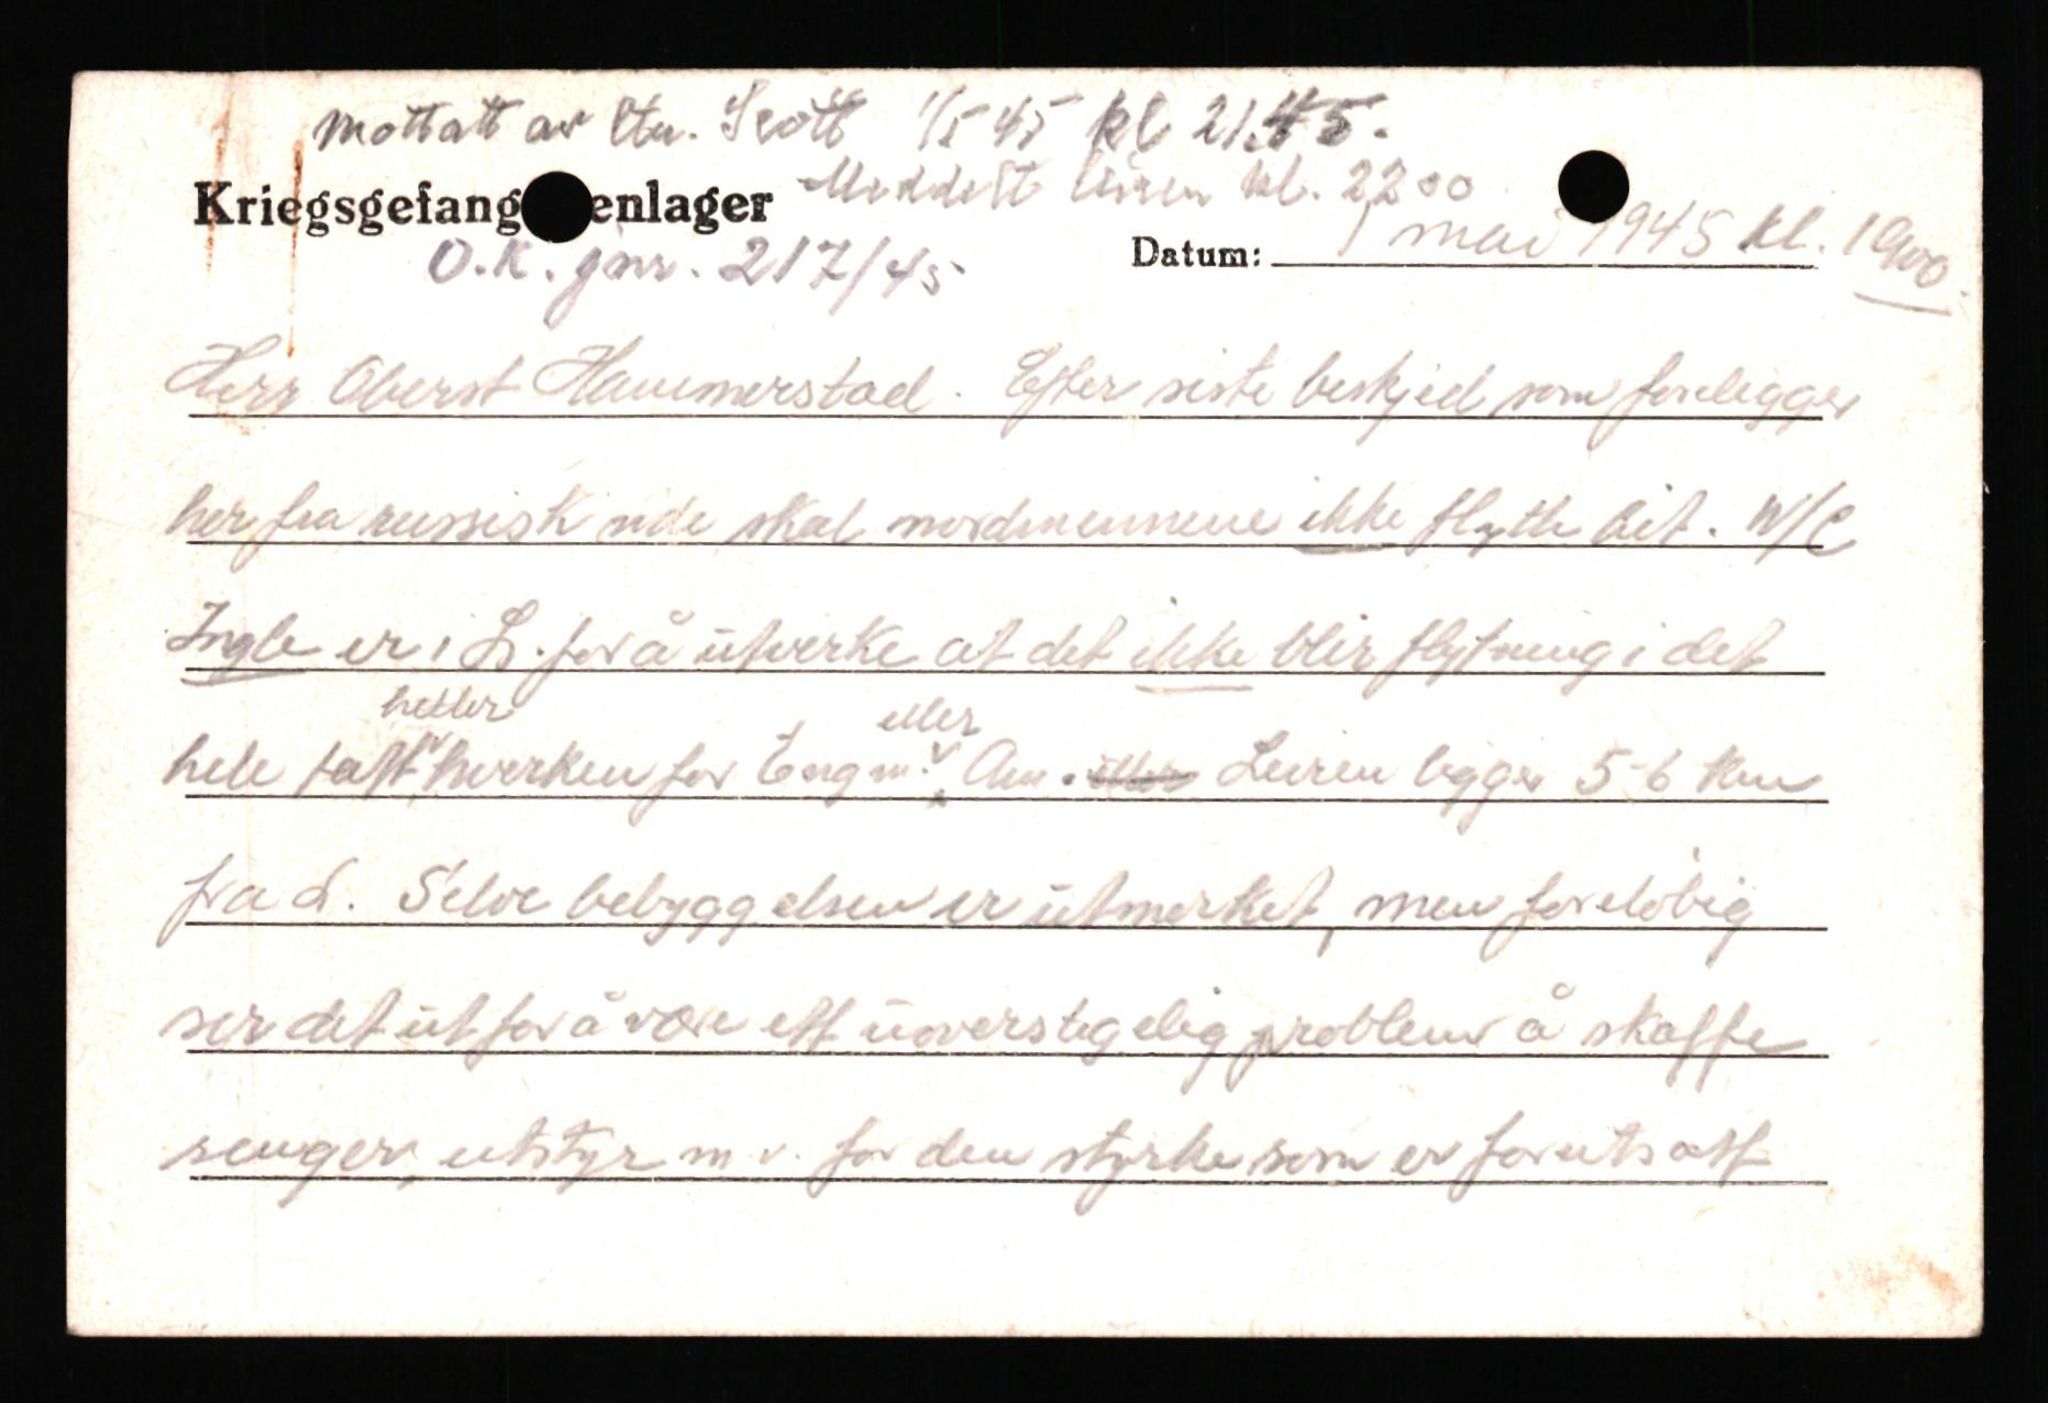 Mottatt av ltn. Scott 1/5 45 kl 21.45.
Meddelt leiren kl. 22 00
Kriegsgefangenenlager
O.K. jnr. 217/45
Datum: 1 mai 1945 kl. 1900.
Herr Oberst Hammerstad. Efter siste beskjed som foreligger
her fra russisk side skal nordmennene ikke flytte hit. W/C
Ingle er i L. for å utvirke at det ikke blir flytning i det
heller eller
hele tatt hverken for Engm. Am. eller Leiren ligger 5-6 km
fra L. Selve bebyggelsen er utmerket, men foreløbig
ser det ut for å være ett uoverstigelig problem å skaffe
senger, utstyr m.v. for den styrke som er forutsatt